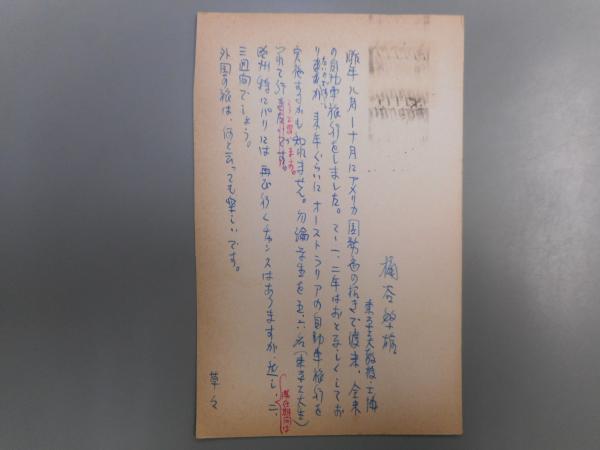 桶谷繁雄
東京工大教授・工博
昨年八月ー十月にアメリカ国務省の招きで渡米、全米
の自動車旅行をしました。ここ一、二年はおとなしくしてお
りますが、来年ぐらいにオーストラリアの自動車旅行を
実施するかも知れません。勿論学生を五、六名(東京工大生)
つれて行
欧州特にパリには再び行くチャンスはありますが、
滞在期間は
三週間でしょう。
外国の旅は、何と云っても楽しいです。
草々